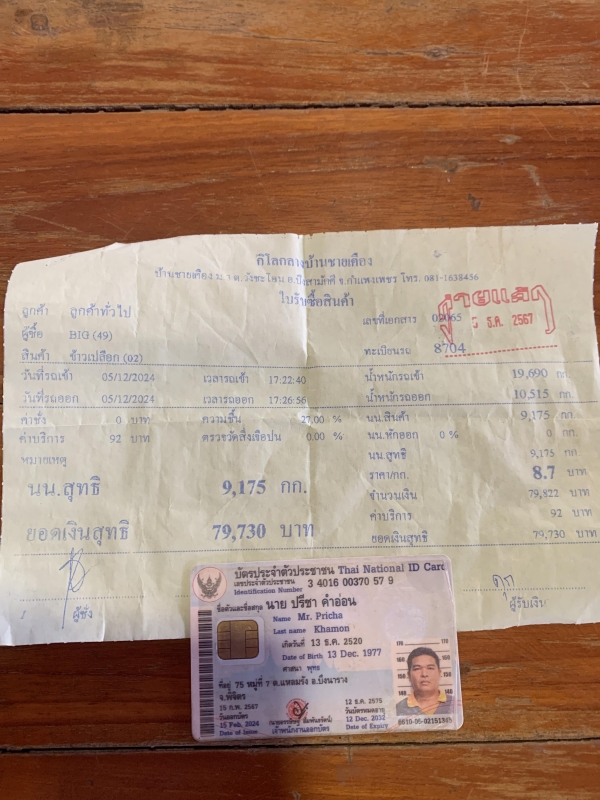 คิโลกลางบ้านชายเคือง
บ้านชายเคือง ม.1 ต.วังชะโอน อ.บึงสามัคคี จ.กำแพงเพชร โทร. 081-1638456
ใบรับซื้อสินค้า
ลูกค้า ลูกค้าทั่วไป
เลขที่เอกสาร
จ่ายแล้ว
5 ธ.ค. 2567
ผู้ซื้อ BIG (49)
ทะเบียนรถ 8704
สินค้า ข้าวเปลือก (02)
วันที่รถเข้า 05/12/2024 เวลารถเข้า 17:22:40 น้ำหนักรถเข้า 19,690 กก.
วันที่รถออก 05/12/2024 เวลารถออก 17:26:56 น้ำหนักรถออก 10,515 กก.
ค่าชั่ง 0 บาท ความชื้น 27.00 % นน.สินค้า 9,175 กก.
ค่าบริการ 92 บาท ตรวจวัดสิ่งเจือปน 0.00 % นน.หักออก 0 % 0 กก.
หมายเหตุ นน.สุทธิ 9,175 กก.
นน.สุทธิ 9,175 กก. ราคา/กก. 8.7 บาท
จำนวนเงิน 79,822 บาท
ค่าบริการ 92 บาท
ยอดเงินสุทธิ 79,730 บาท ยอดเงินสุทธิ 79,730 บาท
ผู้ชั่ง ผู้รับเงิน
บัตรประจำตัวประชาชน Thai National ID Card
เลขประจำตัวประชาชน 3 4016 00370 57 9
Identification Number
ชื่อตัวและชื่อสกุล นาย ปรีชา คำอ่อน
Name Mr. Pricha
Last name Khamon
เกิดวันที่ 13 ธ.ค. 2520
Date of Birth 13 Dec. 1977
ศาสนา พุทธ
ที่อยู่ 75 หมู่ที่ 7 ต.แหลมรัง อ.บึงนาราง
จ.พิจิตร
15 ก.พ. 2567 12 ธ.ค. 2575
วันออกบัตร วันบัตรหมดอายุ
15 Feb. 2024 12 Dec. 2032
Date of Issue เจ้าพนักงานออกบัตร Date of Expiry